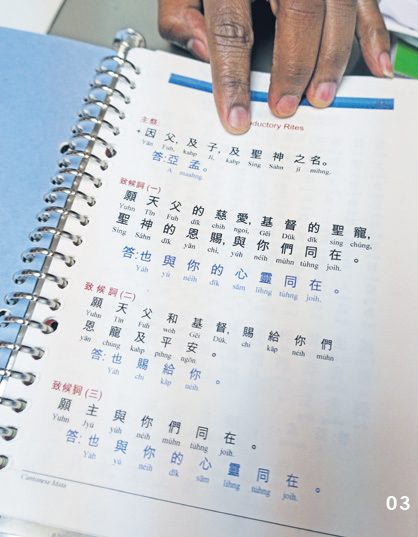 ductory Rites
主祭
+因父，及子，及聖神之名。
Yān Fuh, kahp Jí, kahp Sing Sàhn jí mìhng.
答：亞孟。
A maahng.
致候詞 (一)
願天父的慈愛，基督的聖寵，
Yuhn Tīn Fuh dīk chìh ngoi, Gēi Dūk dīk sing chúng,
聖神的恩賜，與你們同在。
Sing Sàhn dīk yān chi, yúh néih mùhn tùhng joih.
答：也與你的心靈同在。
Yáh yú néih dīk sām lìhng tùhng joih.
致候詞 (二)
願天父和基督，賜給你們
Yuhn Tīn Fuh wòh Gēi Dūk, chi kāp néih mùhn
恩寵及平安。
yān chúng kahp pìhng ngōn.
答：也賜給你。
Yáh chi kāp néih.
致候詞 (三)
願主與你們同在。
Yuhn Jyú yúh néih mùhn tùhng joih.
答：也與你的心靈同在。
Yáh yú néih dīk sām lìhng tùhng joih.
Cantonese Mass
03